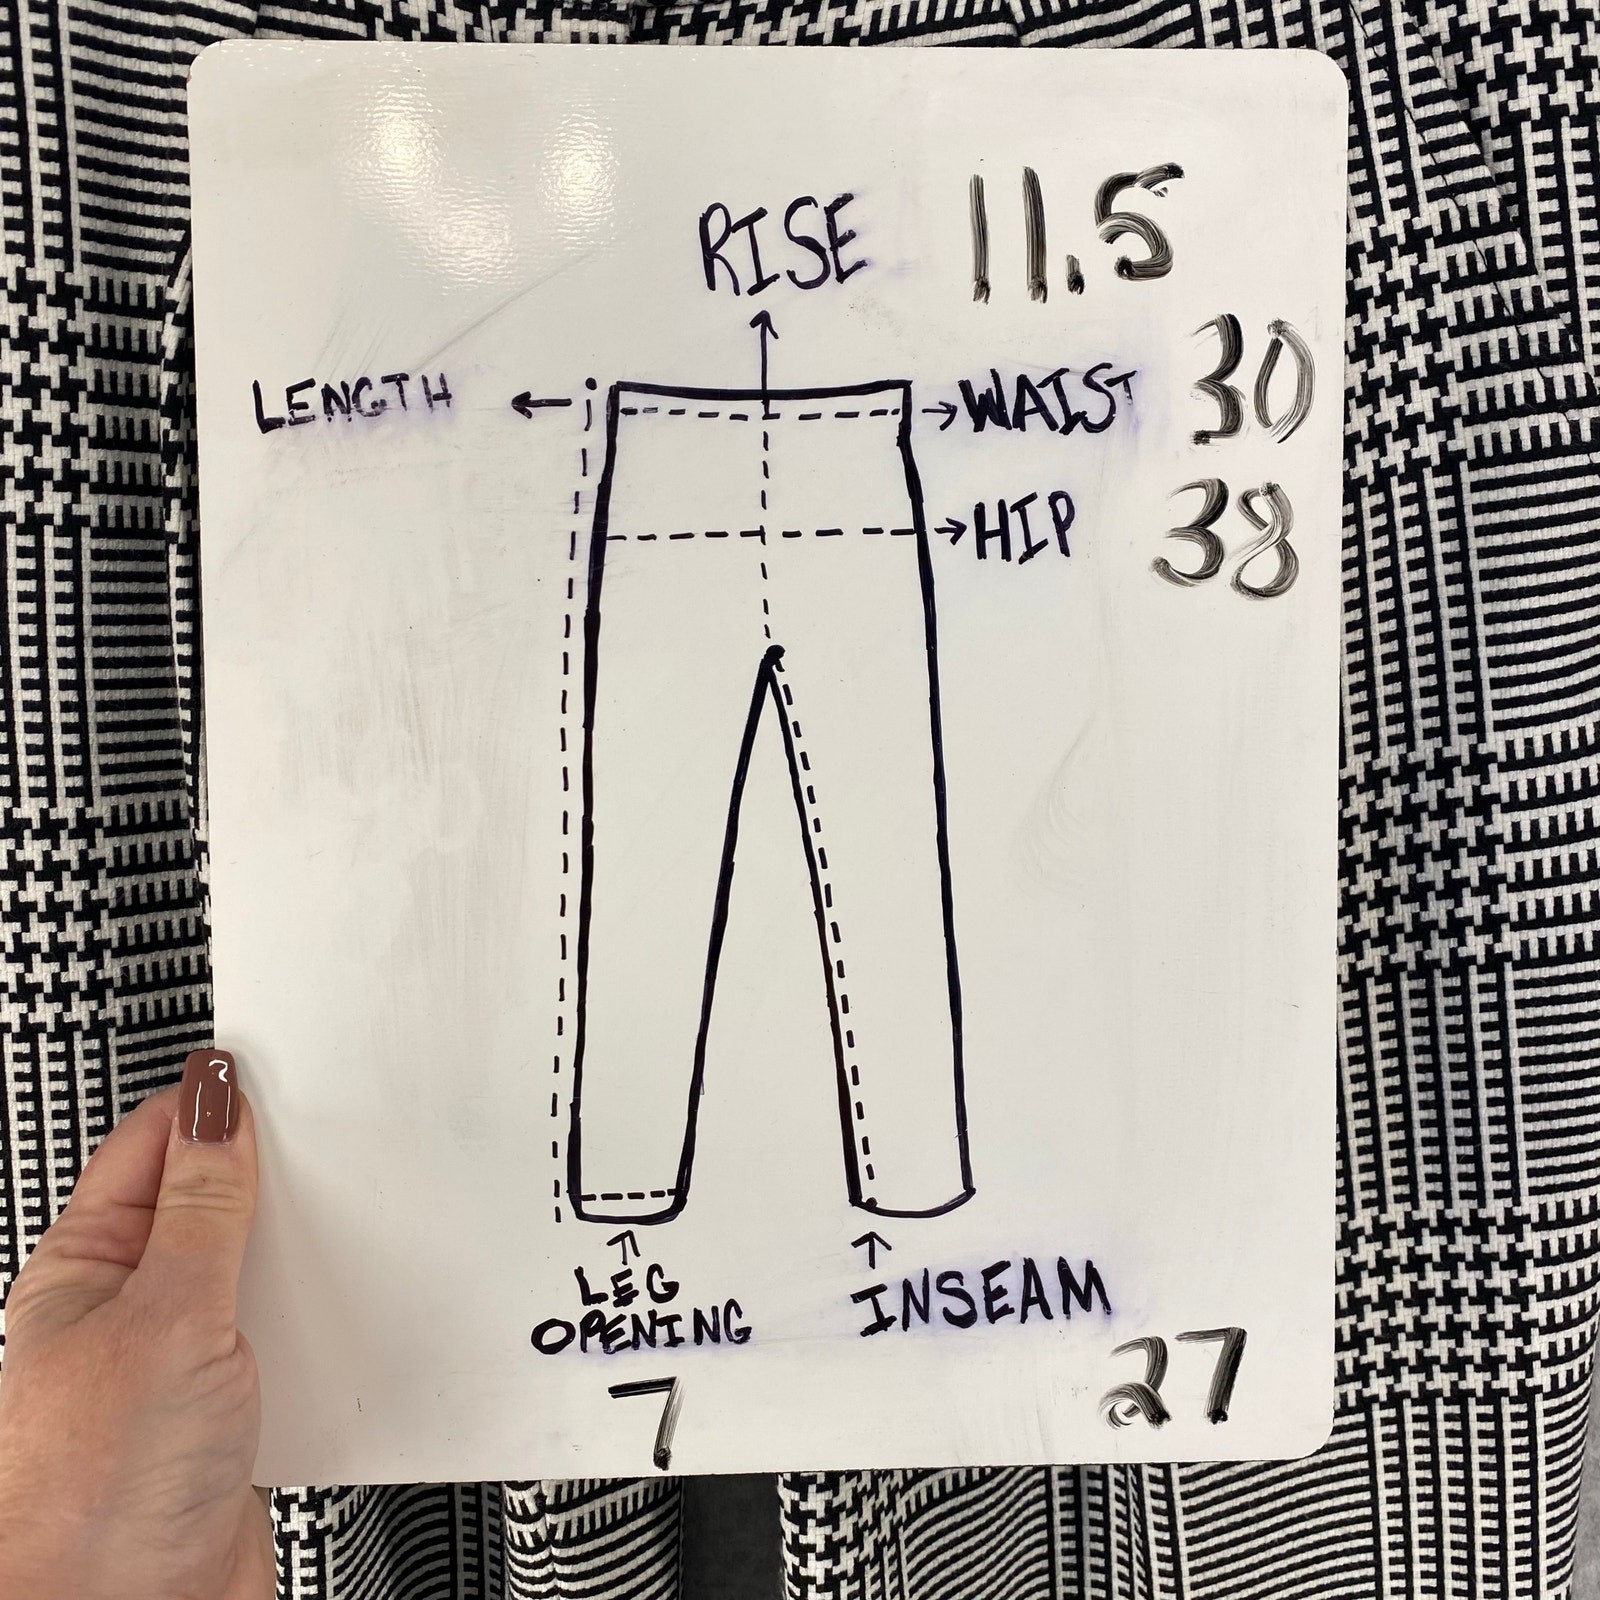 RISE 11.5
LENGTH
WAIST 30
HIP 38
LEG
OPENING
7
INSEAM
27